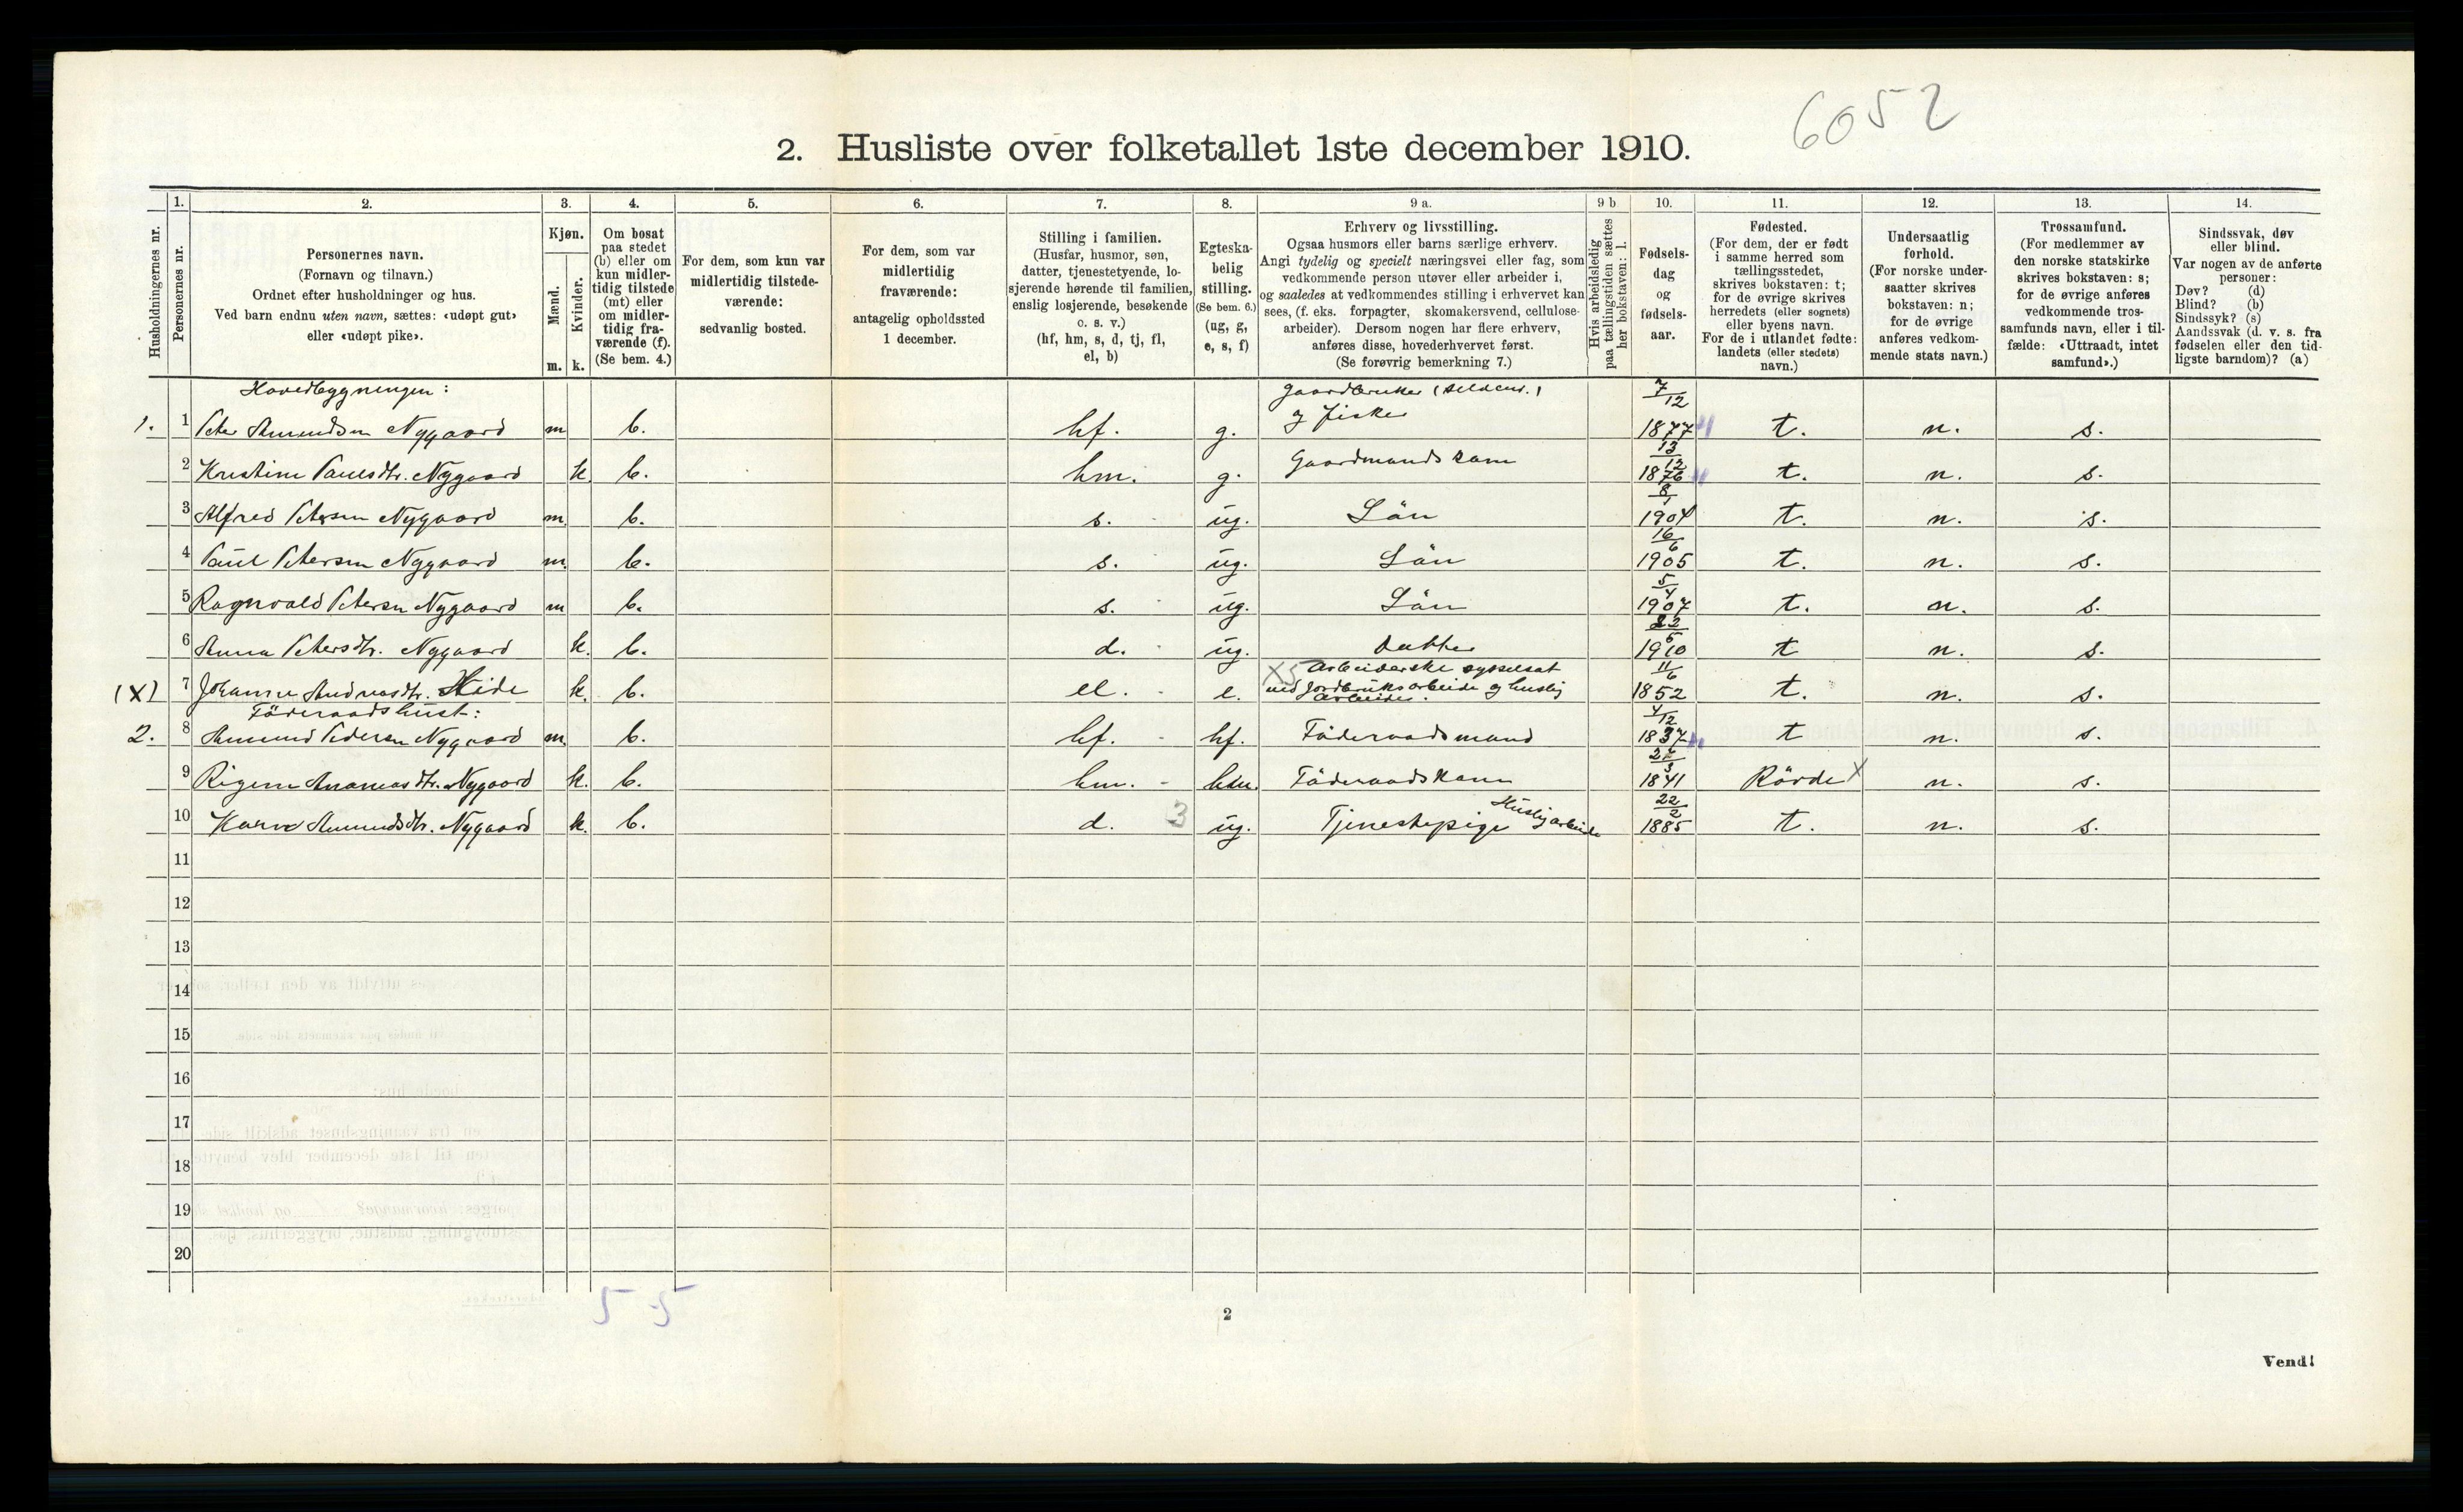 6052
2. Husliste over folketallet 1ste december 1910.
Husholdningernes nr.
1.
Personernes nr.
2.
Personernes navn.
(Fornavn og tilnavn.)
Ordnet efter husholdninger og hus.
Ved barn endnu uten navn, sættes: «udøpt gut»
eller «udøpt pike».
3.
Kjøn.
Mænd.
Kvinder.
m. k.
4.
Om bosat
paa stedet
(b) eller om
kun midler-
tidig tilstede
(mt) eller
om midler-
tidig fra-
værende (f).
(Se bem. 4.)
5.
For dem, som kun var
midlertidig tilstede-
værende:
sedvanlig bosted.
6.
For dem, som var
midlertidig
fraværende:
antagelig opholdssted
1 december.
7.
Stilling i familien.
(Husfar, husmor, søn,
datter, tjenestetyende, lo-
sjerende hørende til familien,
enslig losjerende, besøkende
o. s. v.)
(hf, hm, s, d, tj, fl,
el, b)
8.
Egteska-
belig
stilling.
(Se bem. 6.)
(ug, g,
e, s, f)
9 a.
Erhverv og livsstilling.
Ogsaa husmors eller barns særlige erhverv.
Angi tydelig og specielt næringsvei eller fag, som
vedkommende person utøver eller arbeider i,
og saaledes at vedkommendes stilling i erhvervet kan
sees, (f. eks. forpagter, skomakersvend, cellulose-
arbeider). Dersom nogen har flere erhverv,
anføres disse, hovederhvervet først.
(Se forøvrig bemerkning 7.)
9 b
Hvis arbeidsledig
paa tællingstiden sættes
her bokstaven: l.
10.
Fødsels-
dag
og
fødsels-
aar.
11.
Fødested.
(For dem, der er født
i samme herred som
tællingsstedet,
skrives bokstaven: t;
for de øvrige skrives
herredets (eller sognets)
eller byens navn.
For de i utlandet fødte:
landets (eller stedets)
navn.)
12.
Undersaatlig
forhold.
(For norske under-
saatter skrives
bokstaven: n;
for de øvrige
anføres vedkom-
mende stats navn.)
13.
Trossamfund.
(For medlemmer av
den norske statskirke
skrives bokstaven: s;
for de øvrige anføres
vedkommende tros-
samfunds navn, eller i til-
fælde: «Uttraadt, intet
samfund».)
14.
Sindssvak, døv
eller blind.
Var nogen av de anførte
personer:
Døv? (d)
Blind? (b)
Sindssyk? (s)
Aandssvak (d. v. s. fra
fødselen eller den tid-
ligste barndom)? (a)
Hovedbygningen:
1. 1 Peter Amundsen Nygaard m b. hf. g. Gaardbruker (selveier) og fisker 7/12 1877 t. n. s.
2 Kristine Paulsdtr. Nygaard k b. hm. g. Gaardmandskone 13/12 1876 t. n. s.
3 Alfred Petersen Nygaard m. b. s. ug. Sön 8/1 1904 t. n. s.
4 Paul Petersen Nygaard m. b. s. ug. Sön 16/6 1905 t. n. s.
5 Ragnvald Petersen Nygaard m b. s. ug. Sön 5/4 1907 t. n. s.
6 Anna Petersdtr. Nygaard k. b. d. ug. Datter 1910 t n. s.
(X) 7 Johanne Andreasdtr. Hide k. b. el. e. X5 Arbeiderske sysselsat med jordbruksarbeide og huslig arbeide. 11/6 1852 t. n. s.
Föderaadshust:
2. 8 Amund Pedersen Nygaard m. b. hf. hf. Föderaadsmand 4/12 1837 t n. s.
9 Andreasdtr. Nygaard k. b. hm. hm. Föderaadskone 27/3 1841 Rövde X n. s.
10 Amundsdtr. Nygaard k. b. d. 3 ug. Tjenestepige Huslig arbeide 22/2 1885 t. n. s.
11
12
13
14
15
16
17
18
19
20
5-5
2
Vend!